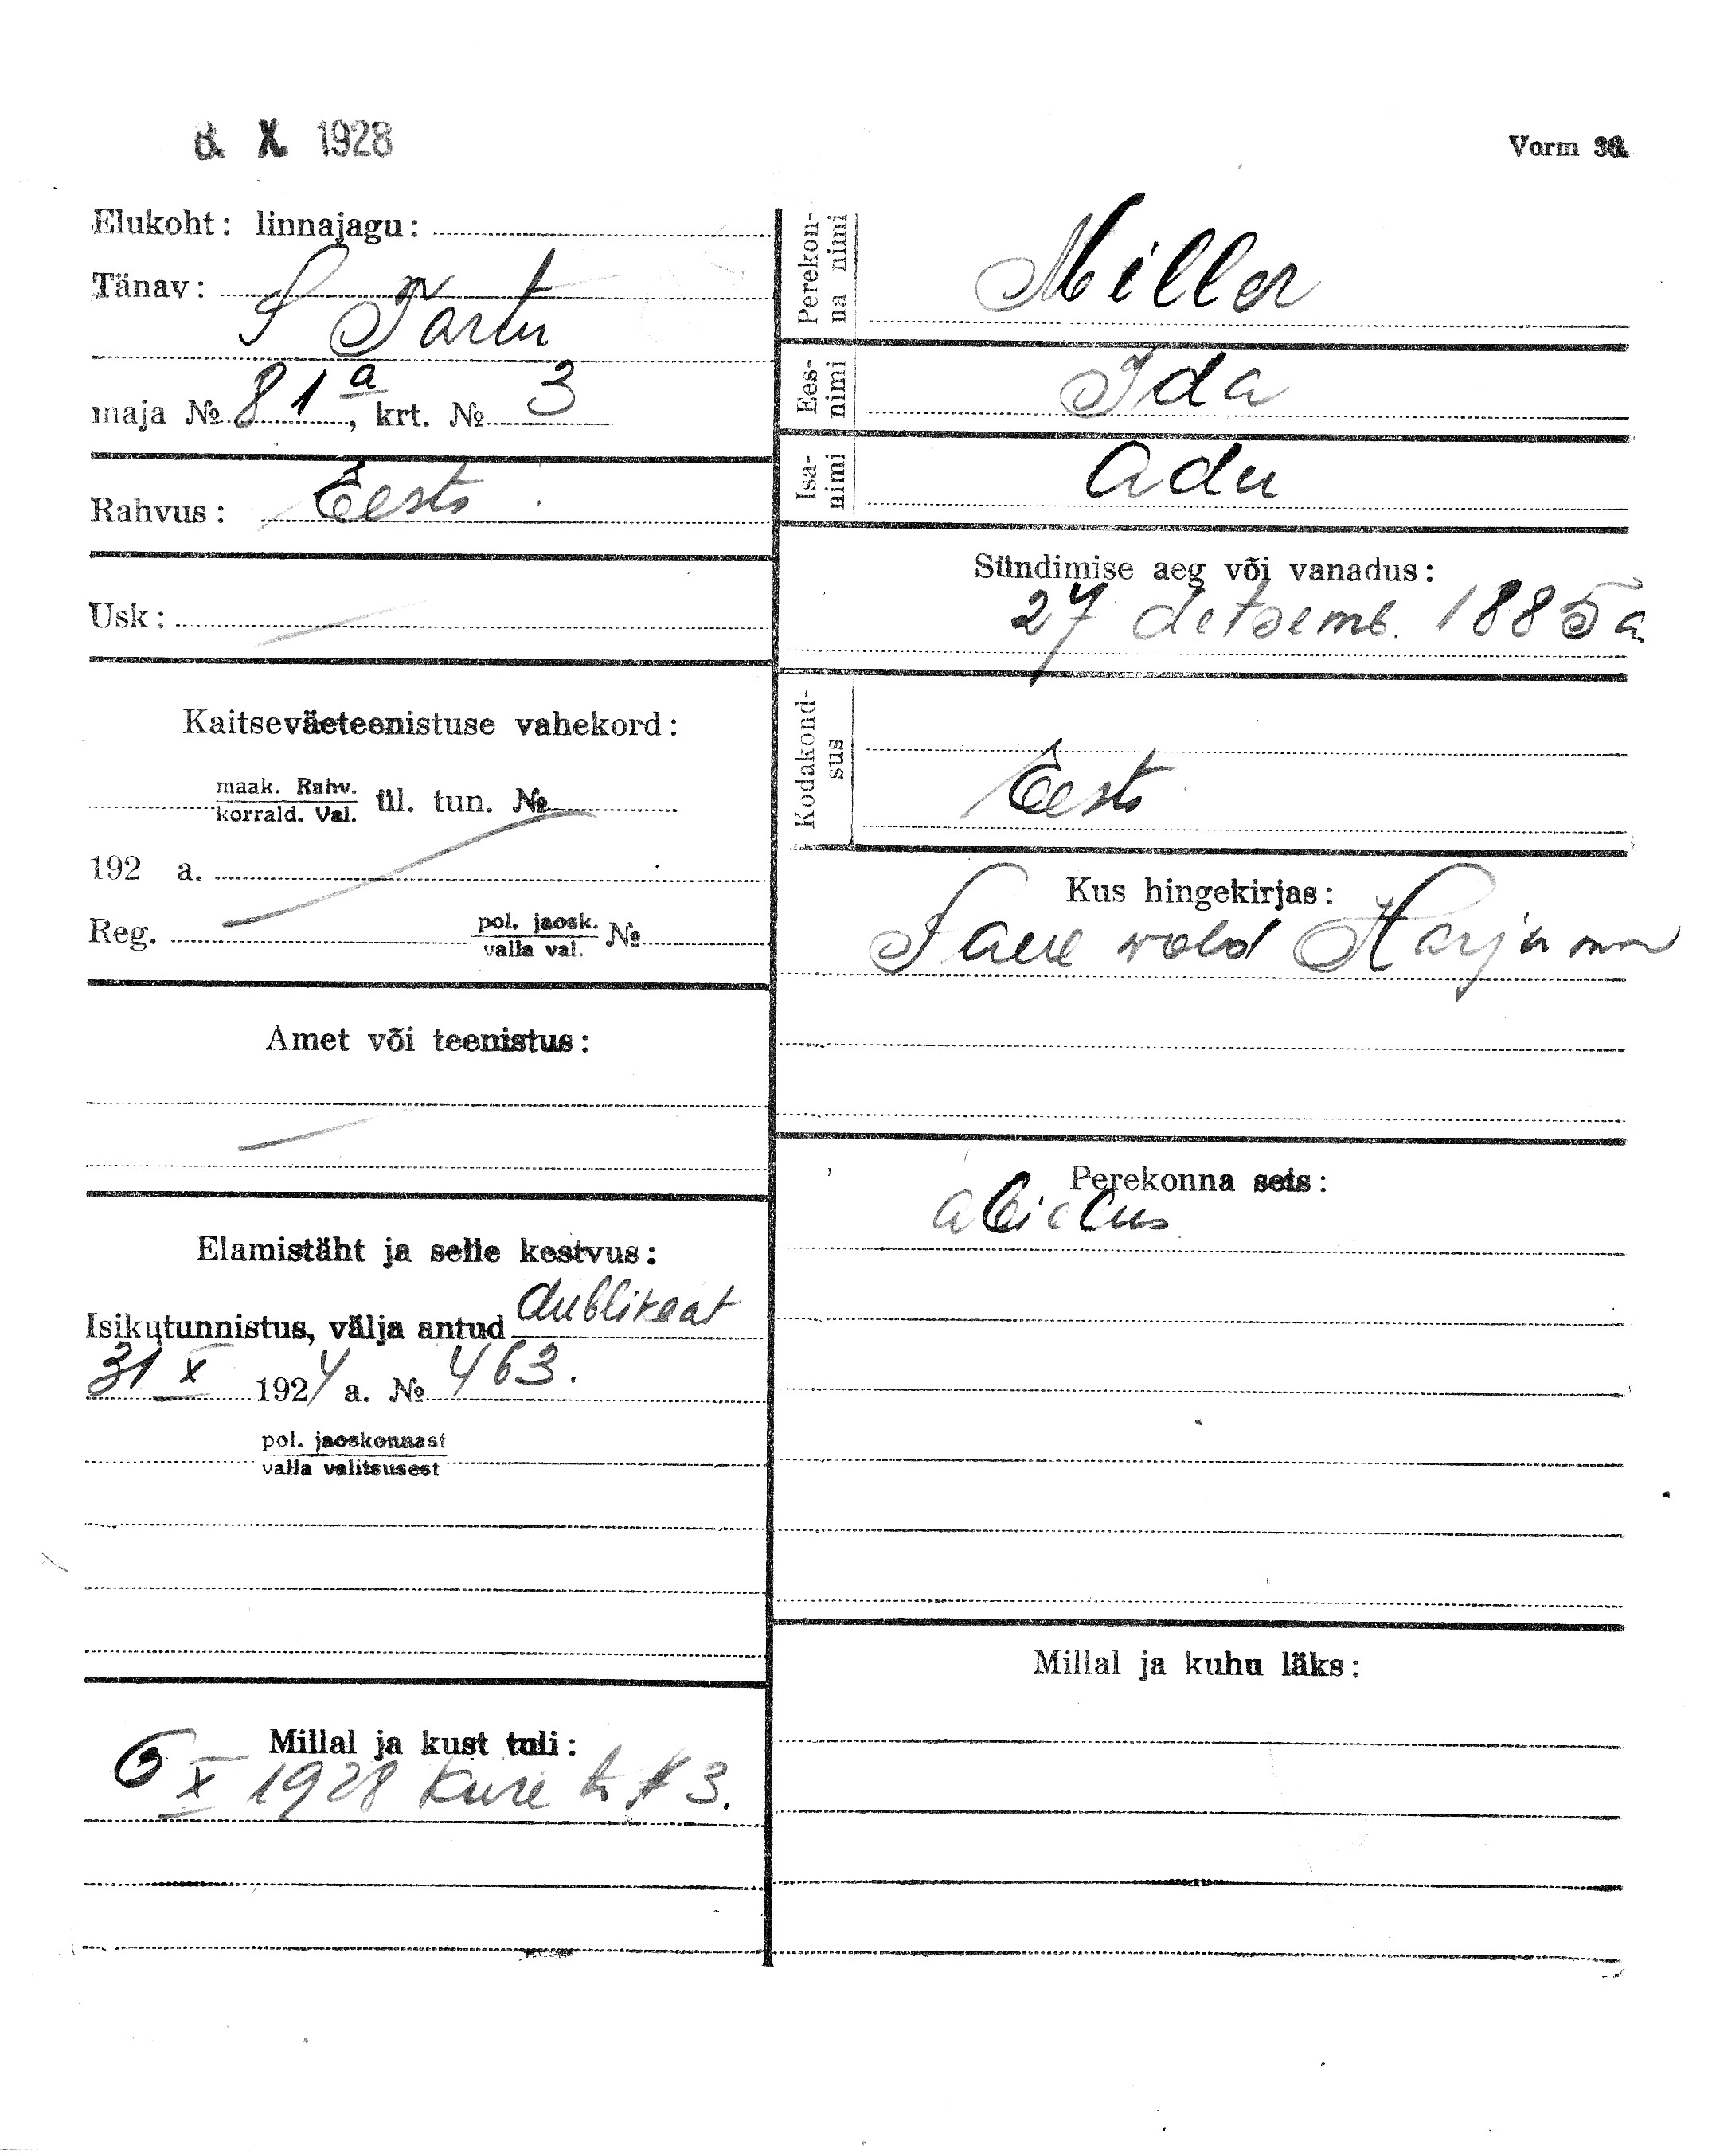 8. X. 1928
Vorm 36.
Elukoht: linnajagu:
Tänav:
S Tartu
maja № 81a, krt. № 3
Rahvus: Eesti
Usk: —
Kaitseväeteenistuse vahekord:
maak. Rahv.
korrald. Val.
ül. tun. №
192 a.
Reg. pol. jaosk. №
valla val.
Amet või teenistus:
—
Elamistäht ja selle kestvus:
Isikutunnistus, välja antud dublikaat
31 X 1924 a. № 463.
pol. jaoskonnast
valla valitsusest
Millal ja kust tuli:
6 X 1928 Kure tn № 3.
Perekon-
na nimi
Miller
Ees-
nimi
Ida
Isa-
nimi
Adu
Sündimise aeg või vanadus:
27 detsemb. 1885 a.
Kodakond-
sus
Eesti
Kus hingekirjas:
Saue vald Harjumm
Perekonna seis:
abielus
Millal ja kuhu läks: